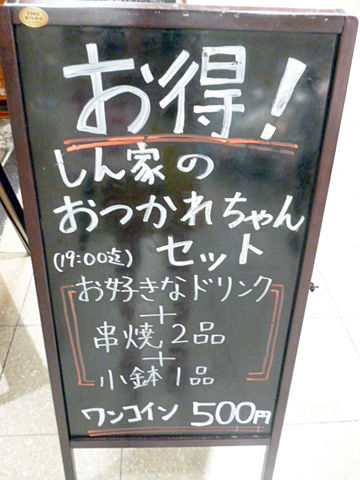 お得!
しん家の
おつかれちゃん
(19:00迄) セット
お好きなドリンク
+
串焼2品
+
小鉢1品
ワンコイン 500円